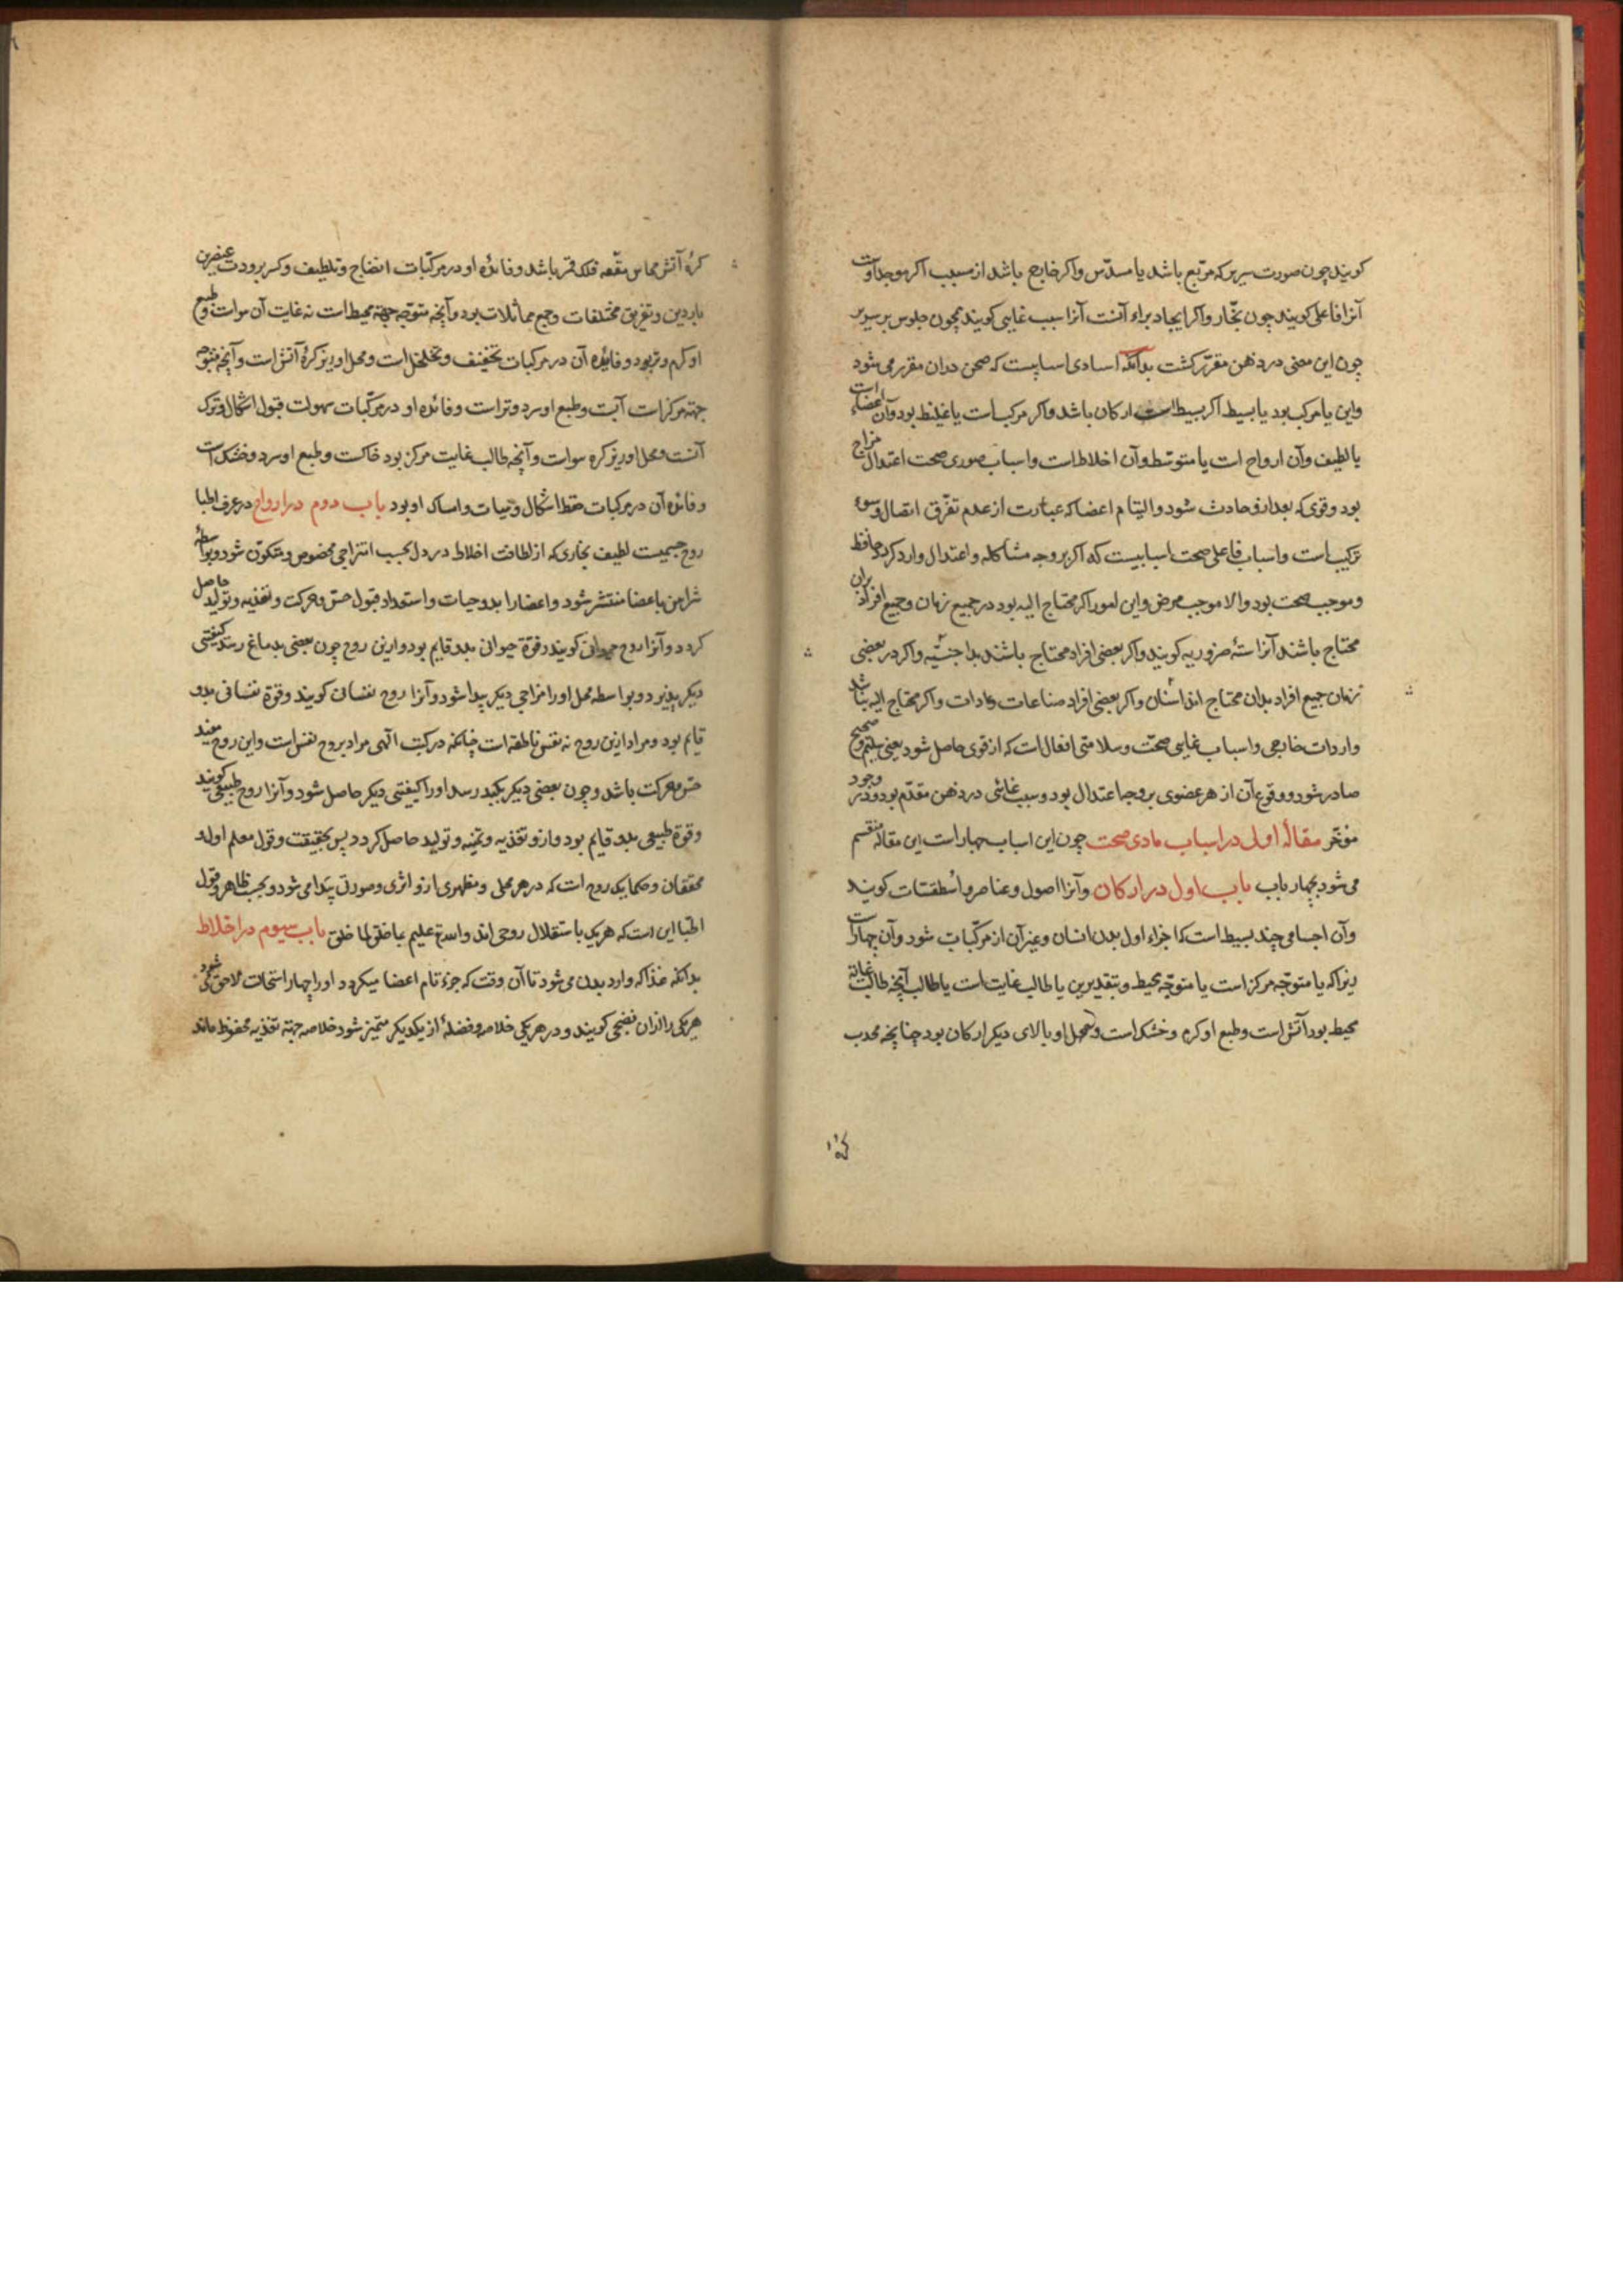 کویند چون صورت سریر که مربّع باشد یا مسدّس واکر خارج باشد از مسبب اکر موجد اوست
آنرا فاعلی کویند چون نجّار واکر ایجاد برای آنست آنرا سبب غایی کویند همچون جلوس بر سریر
چون این معنی در ذهن مقرّر کشت بدانکه اسباب مادی
واین یا مرکب بود یا بسیط اکر بسیط است ارکان باشد واکر مرکب است یا غلیظ بود وآن اعضاء است
یا لطیف وآن ارواح است یا متوسّط وآن اخلاط است واسباب صوری صحت اعتدال مزاج
بود وقوی که بعد ازو حادث شود والتیام اعضا که عبارت از عدم تفرّق اتصال وسوء
ترکیب است واسباب فاعلی صحت اسبابیست که اکر بر وجه مشاکله واعتدال وارد کردد حافظ
وموجب صحت بود والا موجب مرض واین امور اکر محتاج الیه بود در جمیع زمان وجمیع افراد بران
محتاج باشند آنرا ستهٔ ضروریه کویند واکر بعضی افراد محتاج باشند بدا جنسیه واکر در بعضی
زمان جمیع افراد بدان محتاج اند اسنان واکر بعضی افراد صناعات وعادات واکر محتاج الیه نباشد
واردات خارجی واسباب غایی صحّت وسلامتی افعال است که از قوی حاصل شود یعنی سلیم وصحیح
صادر شود ووقوع آن از هر عضوی بر وجه اعتدال بود وسبب غائی در ذهن مقدّم بود ودر وجود
مؤخّر مقالهٔ اولی در اسباب مادی صحت چون این اسباب چهار است این مقاله منقسم
می شود بچهار باب باب اول در ارکان وآنرا اصول وعناصر واسطقسّات کویند
وآن اجسامی چند بسیط است که اجزاء اول بدن انسان وغیر آن از مرکّبات شود وآن چهار است
زیرا که یا متوجّه مرکز است یا متوجّه محیط وبتقدیرین یا طالب غایت است یا لا طالب آنچه طالب غایة
محیط بود آتش است وطبع او کرم وخشک است ومحل او بالای دیکر ارکان بود چنانچه محدب
کره
کرهٔ آتش مماس مقعّر فلک قمر باشد وفائدهٔ او در مرکّبات انضاج وتلطیف وکسر برودت عنصرین
باردین وتفریق مختلفات وجمع مماثلات بود وآنچه متوجّه جهة محیط است نه غایت آن هواست وطبع
او کرم وتر بود وفائدهٔ آن در مرکبات تخفیف وتخلخل است ومحل او زیر کرهٔ آتش است وآنچه متوجه
جهة مرکز است آبست وطبع او سرد وتر است وفائدهٔ او در مرکّبات سهولت قبول اشکال وترک
آنست ومحل او زیر کره هواست وآنچه طالب غایت مرکز بود خاکست وطبع او سرد وخشک است
وفائدهٔ آن در مرکبات حفظ اشکال وهیات وامساک او بود باب دوم در ارواح در عرف اطبا
روح جسمیست لطیف بخاری که از لطافت اخلاط در دل بحسب امتزاجی مخصوص متکوّن شود وبواسطهٔ
شراین باعضا منتشر شود واعضا را بدو حیات واستعداد قبول حسّ وحرکت وتغذیه وتولید حاصل
کردد وآنرا روح حیوانی کویند وقوّة حیوانی بدو قایم بود وازین روح چون بعضی بدماغ رسد کیفیتی
دیکر پذیرد وبواسطه محل او را مزاجی دیکر پیدا شود وآنرا روح نفسانی کویند وقوّة نفسانی بدو
قایم بود ومراد ازین روح نه نفس ناطقه است چنانکه در کتب الهی مراد بروح نفس است واین روح مفید
حسّ وحرکت باشد وچون بعضی دیکر بکبد رسد او را کیفیّتی دیکر حاصل شود وآنرا روح طبیعی کویند
وقوّة طبیعی بدو قایم بود وازو تغذیه وتنمیه وتولید حاصل کردد پس بحقیقت وقول معلم اول
محققان وحکما یک روح است که در هر محلی ومظهری ازو اثری وصورتی پیدا می شود وبحسب ظاهر وقول
اطبّا این است که هر یک باستقلال روحی اند والله علیم بما خلق لما خلق باب سیوم در اخلاط
بدانکه غذا که وارد بدن می شود تا آن وقت که جزء تام اعضا میکردد او را چهار استحالت لاحق می شود
هر یکی را از آن هضمی کویند ودر هر یکی خلاصه وفضلهٔ از یکدیکر متمیز شود خلاصه جهة تغذیه محفوظ ماند